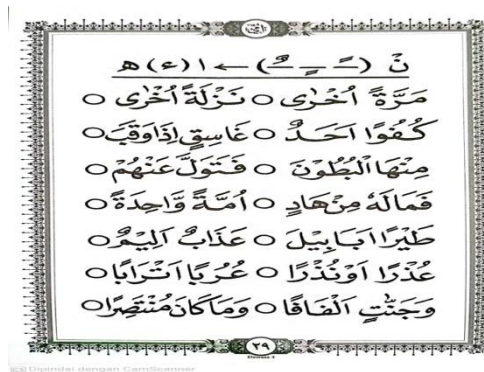 نْ (ـًـ ـٍـ ـٌـ) ← ا (ء) ه
مَرَّةً اُخْرٰى ○ نَزْلَةً اُخْرٰى ○
كُفُوًا اَحَدٌ ○ غَاسِقٍ اِذَا وَقَبَ ○
مِنْهَا الْبُطُوْنَ ○ فَتَوَلَّ عَنْهُمْ ○
فَمَالَهٗ مِنْ هَادٍ ○ اُمَّةً وَّاحِدَةً ○
طَيْرًا اَبَابِيْلَ ○ عَذَابٌ اَلِيْمٌ ○
عُذْرًا اَوْنُذْرًا ○ عُرُبًا اَتْرَابًا ○
وَجَنّٰتٍ اَلْفَافًا ○ وَمَا كَانَ مُنْتَصِرًا ○
٢٩
Dipindai dengan CamScanner